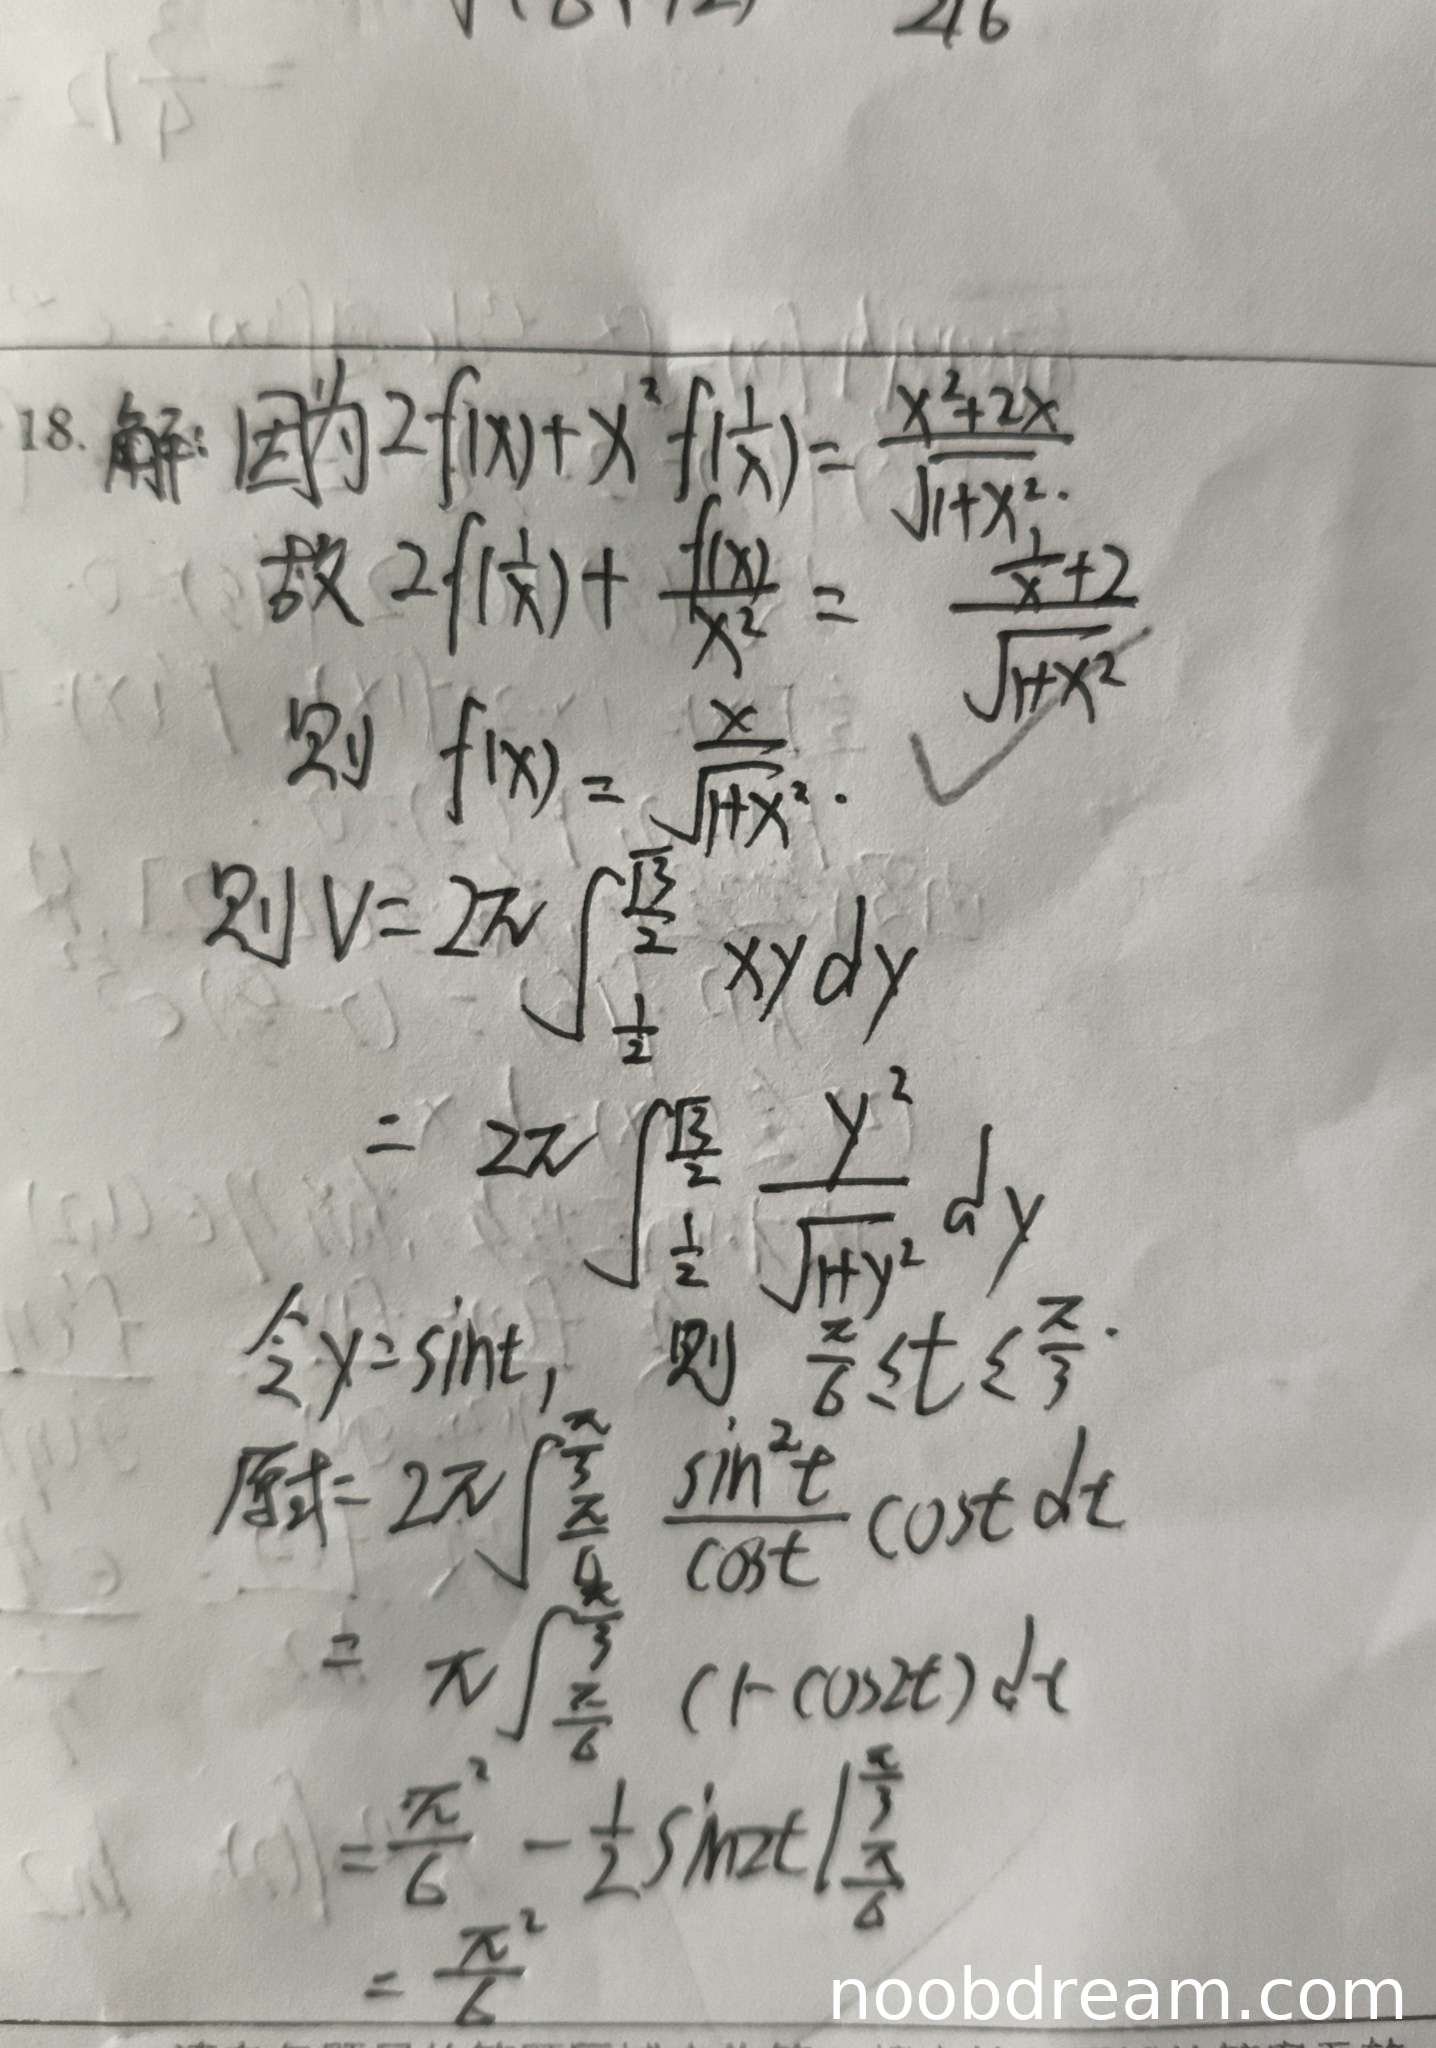 216
18. 解: 因为 2f(x)+x²f(1/x)=(x²+2x)/√(1+x²).
故 2f(1/x)+f(x)/x²=(1/x+2)/√(1+x²)
则 f(x)=x/√(1+x²).
则V=2π∫_{1/2}^{√3/2} xy dy
=2π∫_{1/2}^{√3/2} y²/√(1+y²) dy
令y=sint, 则 π/6≤t≤π/3.
原式=2π∫_{π/6}^{π/3} sin²t/cost cost dt
=π∫_{π/6}^{π/3} (1-cos2t)dt
=π²/6-1/2 sin2t|_{π/6}^{π/3}
=π²/6
noobdream.com